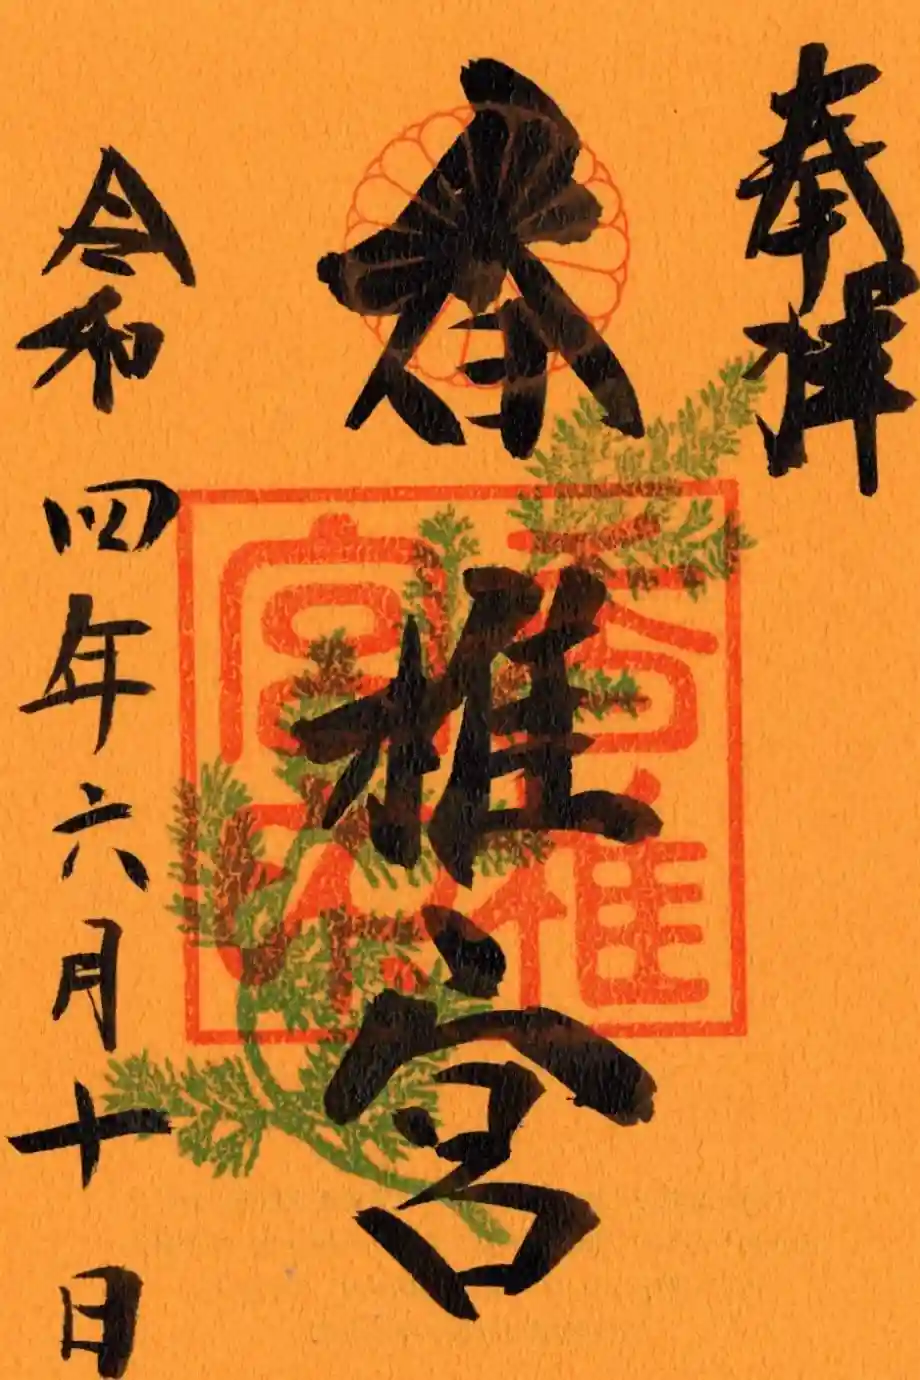 奉拝
香椎宮
香椎宮印
令和四年六月十日